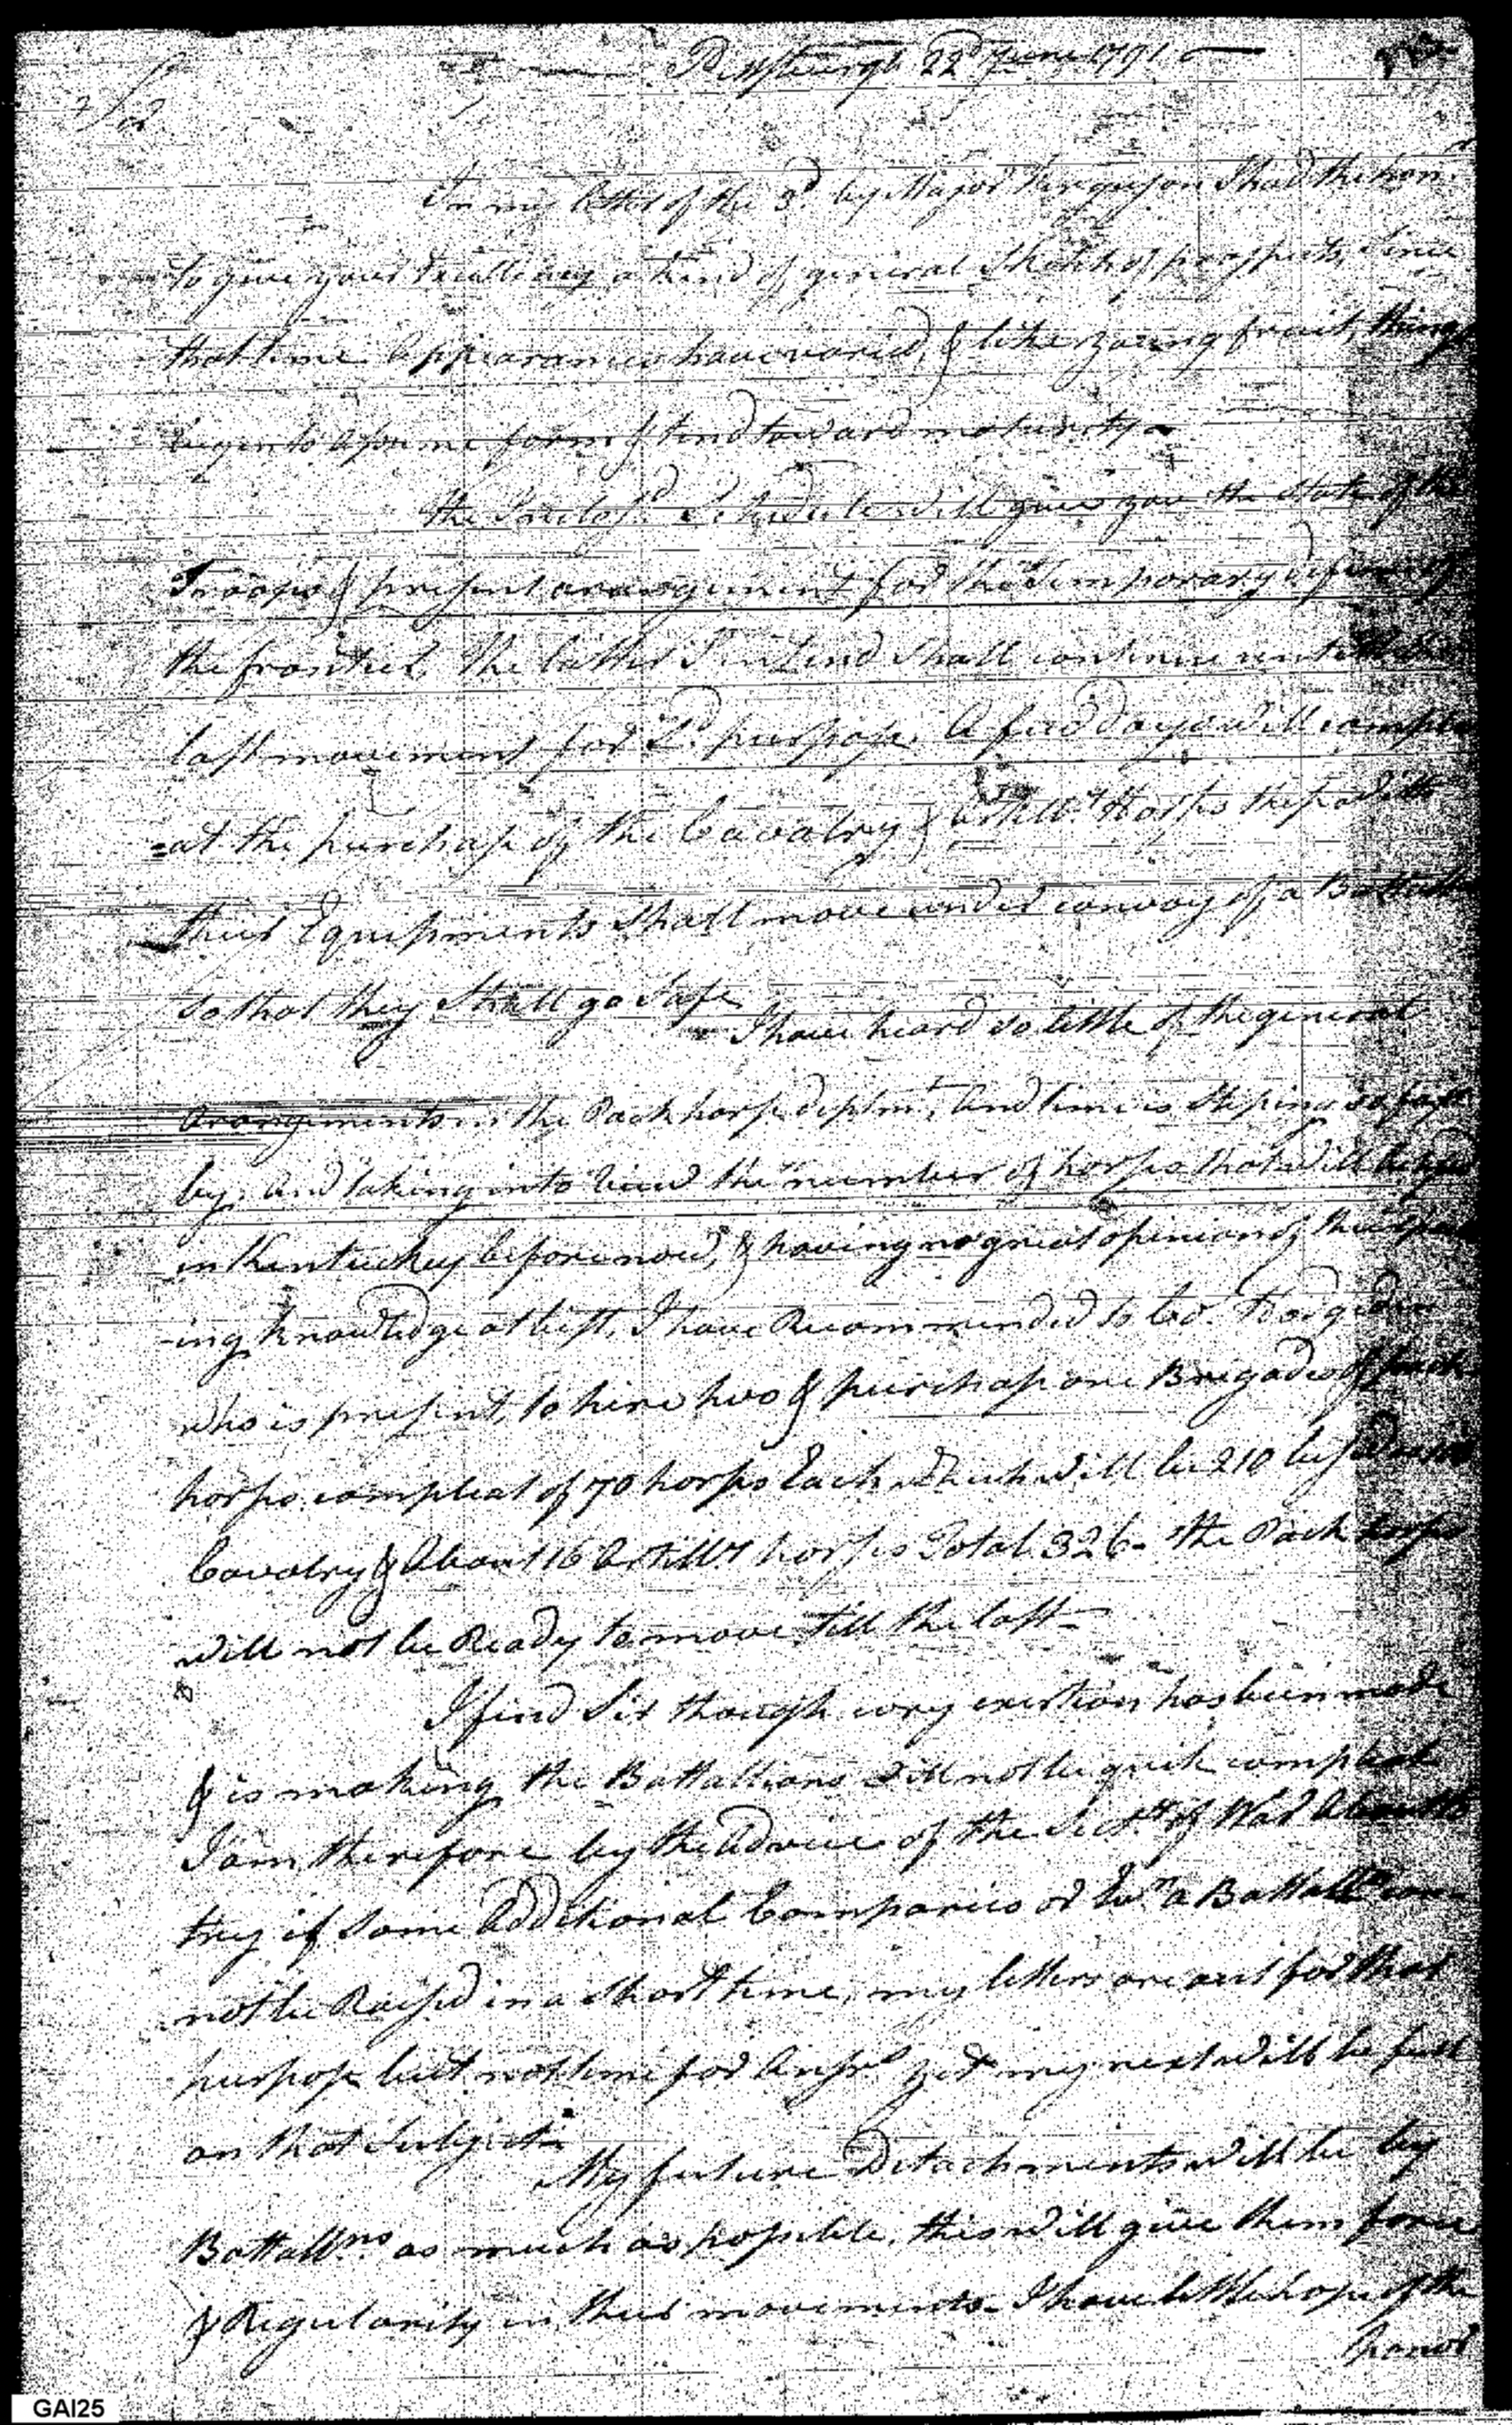 Pittsburgh 22d June 1791
Sir
In my letter of the 3d by Major Ferguson I had the honr
to give your Excellency a kind of general Sketch of prospects, Since
that time Appearances have varied, & like young fruit, things
begin to Assume form & tend toward maturity
the Inclosd Schedule will give you the State of the
Troops & present arangement for the temporary defence of
the frontier. The latter I intend shall continue until the
last movement for Sd purpose. A few days will comple
=at the purchase of the Cavalry & Artillry Horses these with
their Equipments Shall move under convoy of a Battalln
So that they Shall go Safe
I have heard so little of the general
Arangements in the Pack horse deptmt, And time is Steping so fast
by, And taking into View the number of horses that will be
in Kentuckey before now, & having no great opinion of their
-ing knowledge at best, I have Recommended to Col. Hodgdon
who is present, to hire two & purchase one Brigades of pack
horses compleat of 70 horses Each which will be 210 besides
Cavalry & About 16 Artillry horses Total 326- the Pack horses
will not be Ready to move till the last-
I find Sir though evry exertion has been made
& is making the Battallions will not be quite compleat
I am therefore by the Advice of the Secty of War About to
try if Some Additional Companies or Evn a Battalln can-
not be Raised in a Short time, my letters are out for that
purpose but not time for Ansrs yet my next will be full
on that Subject-
My future Detachments will be by
Battallns as much as possible, this will give them force
& Regularity in their movements- I have little hope of the
honor
GAI25